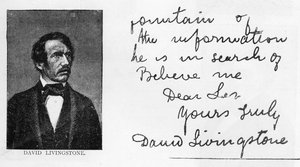 DAVID LIVINGSTONE.
fountain of
the information
he is in search of
Believe me
Dear Sir
Yours truly
David Livingstone